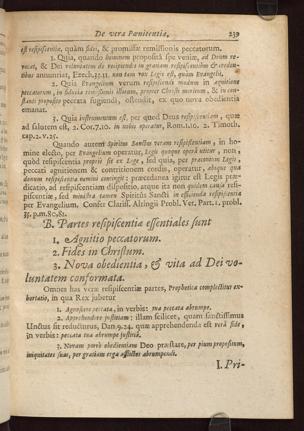 De vera Pœnitentia. 239
est resipiscentiæ, quàm fidei, & promissæ remissionis peccatorum.
1. Quia, quando homnem proposita spe veniæ, ad Deum revocat, & Dei voluntatem de recipiendis in gratiam resipiscentibus & credentibus annuntiat, Ezech. 33.11. non tam vox Legis est, quàm Evangelii.
2. Quia Evangelium verum resipiscendi modum in agnitione
peccatorum, in fiducia remissionis illorum, propter Christi meritum, & in constanti proposito peccata fugiendi, ostendit, ex quo nova obedientia
emanat.
3. Quia instrumentum est, per quod Deus resipiscentiam, quæ
ad salutem est, 2. Cor. 7.10. in nobis operatur, Rom. 1.16. 2. Timoth.
cap. 2. v. 25.
Quando autem Spiritus Sanctus veram resipiscentiam, in homine electo, per Evangelium operatur, Legis quoque operâ utitur, non
quòd resipiscentia propriè sit ex Lege, sed quia, per præconium Legis,
peccati agnitionem & contritionem cordis, operatur, absque qua
darum resipiscentia nemini contingit: præcedanea igitur est Legis prædicatio, ad resipiscentiam dispositio, atque ita non quidem causa resipiscentiæ, sed ministra tamen Spiritûs Sancti in efficienda resipiscentia
per Evangelium. Confer Clariss. Altingii Probl. Vet. Part. 1. probl.
35. p.m. 80.81.
B. Partes resipiscentiæ essentiales sunt
1. Agnitio peccatorum.
2. Fides in Christum.
3. Nova obedientia, & vita ad Dei voluntatem conformata.
Omnes has veræ resipiscentiæ partes, Prophetica complectitur exhortatio, in qua Rex jubetur
1. Agnoscere peccata, in verbis: tua peccata abrumpe.
2. Apprehendere justitiam: illam scilicet, quam sanctissimus
Unctus sit reducturus, Dan. 9.24. quæ apprehendenda est verâ fide,
in verbis: peccata tua abrumpe justitiâ.
3. Novam porrò obedientiam Deo præstare, per pium propositum,
iniquitates suas, per gratiam erga afflictos abrumpendi.
I. Pri-